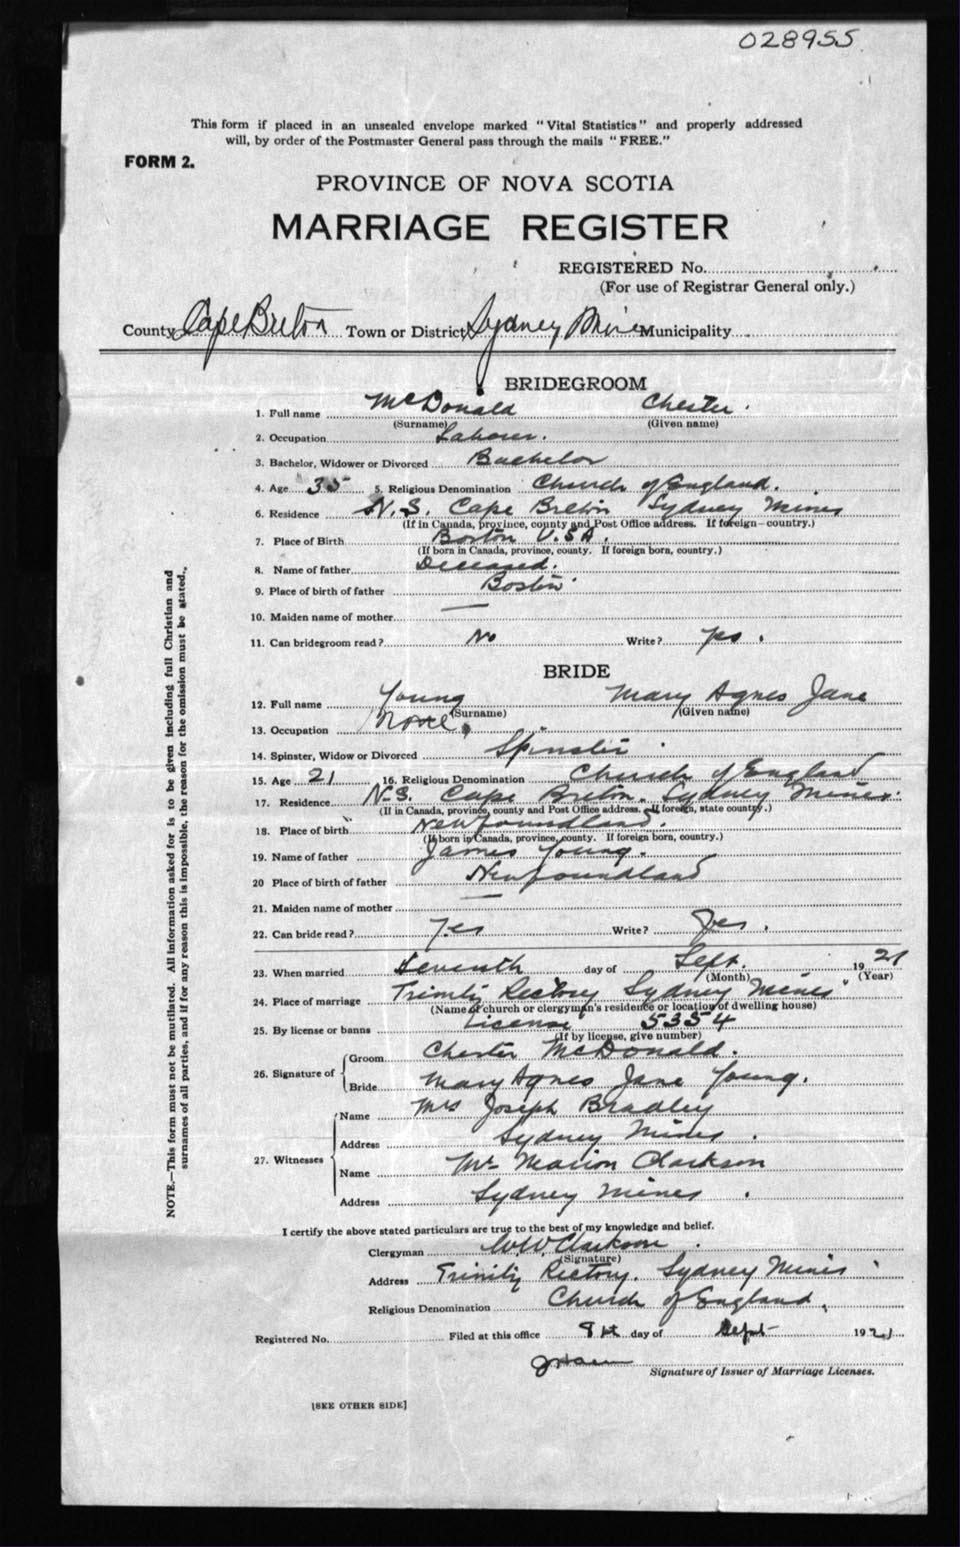 028955
This form if placed in an unsealed envelope marked "Vital Statistics" and properly addressed
will, by order of the Postmaster General pass through the mails "FREE."
FORM 2.
PROVINCE OF NOVA SCOTIA
MARRIAGE REGISTER
REGISTERED No.
(For use of Registrar General only.)
County Cape Breton Town or District Sydney Mines Municipality
BRIDEGROOM
1. Full name McDonald Chester.
(Surname) (Given name)
2. Occupation Laborer.
3. Bachelor, Widower or Divorced Bachelor
4. Age 35 5. Religious Denomination Church of England.
6. Residence N.S. Cape Breton Sydney Mines
(If in Canada, province, county and Post Office address. If foreign—country.)
7. Place of Birth Boston U.S.A.
(If born in Canada, province, county. If foreign born, country.)
8. Name of father Deceased.
9. Place of birth of father Boston
10. Maiden name of mother —
11. Can bridegroom read? No Write? yes.
BRIDE
12. Full name Young Mary Agnes Jane
(Surname) (Given name)
13. Occupation None.
14. Spinster, Widow or Divorced Spinster
15. Age 21 16. Religious Denomination Church of England
17. Residence N.S. Cape Breton. Sydney Mines.
(If in Canada, province, county and Post Office address. If foreign, state country.)
18. Place of birth Newfoundland.
(If born in Canada, province, county. If foreign born, country.)
19. Name of father James Young.
20 Place of birth of father Newfoundland
21. Maiden name of mother —
22. Can bride read? Yes Write? Yes.
23. When married Seventh day of Sept. 1921
(Month) (Year)
24. Place of marriage Trinity Rectory Sydney Mines
(Name of church or clergyman's residence or location of dwelling house)
25. By license or banns License 5354
(If by license, give number)
26. Signature of Groom Chester McDonald.
Bride Mary Agnes Jane Young.
27. Witnesses Name Mrs Joseph Bradley
Address Sydney Mines.
Name Mrs Marion Clarkson
Address Sydney Mines.
I certify the above stated particulars are true to the best of my knowledge and belief.
Clergyman W W Clarkson.
(Signature)
Address Trinity Rectory. Sydney Mines
Religious Denomination Church of England.
Registered No. Filed at this office day of Sept 1921
Signature of Issuer of Marriage Licenses.
[SEE OTHER SIDE]
NOTE.—This form must not be mutilated. All information asked for is to be given including full Christian and
surnames of all parties, and if for any reason this is impossible, the reason for the omission must be stated.